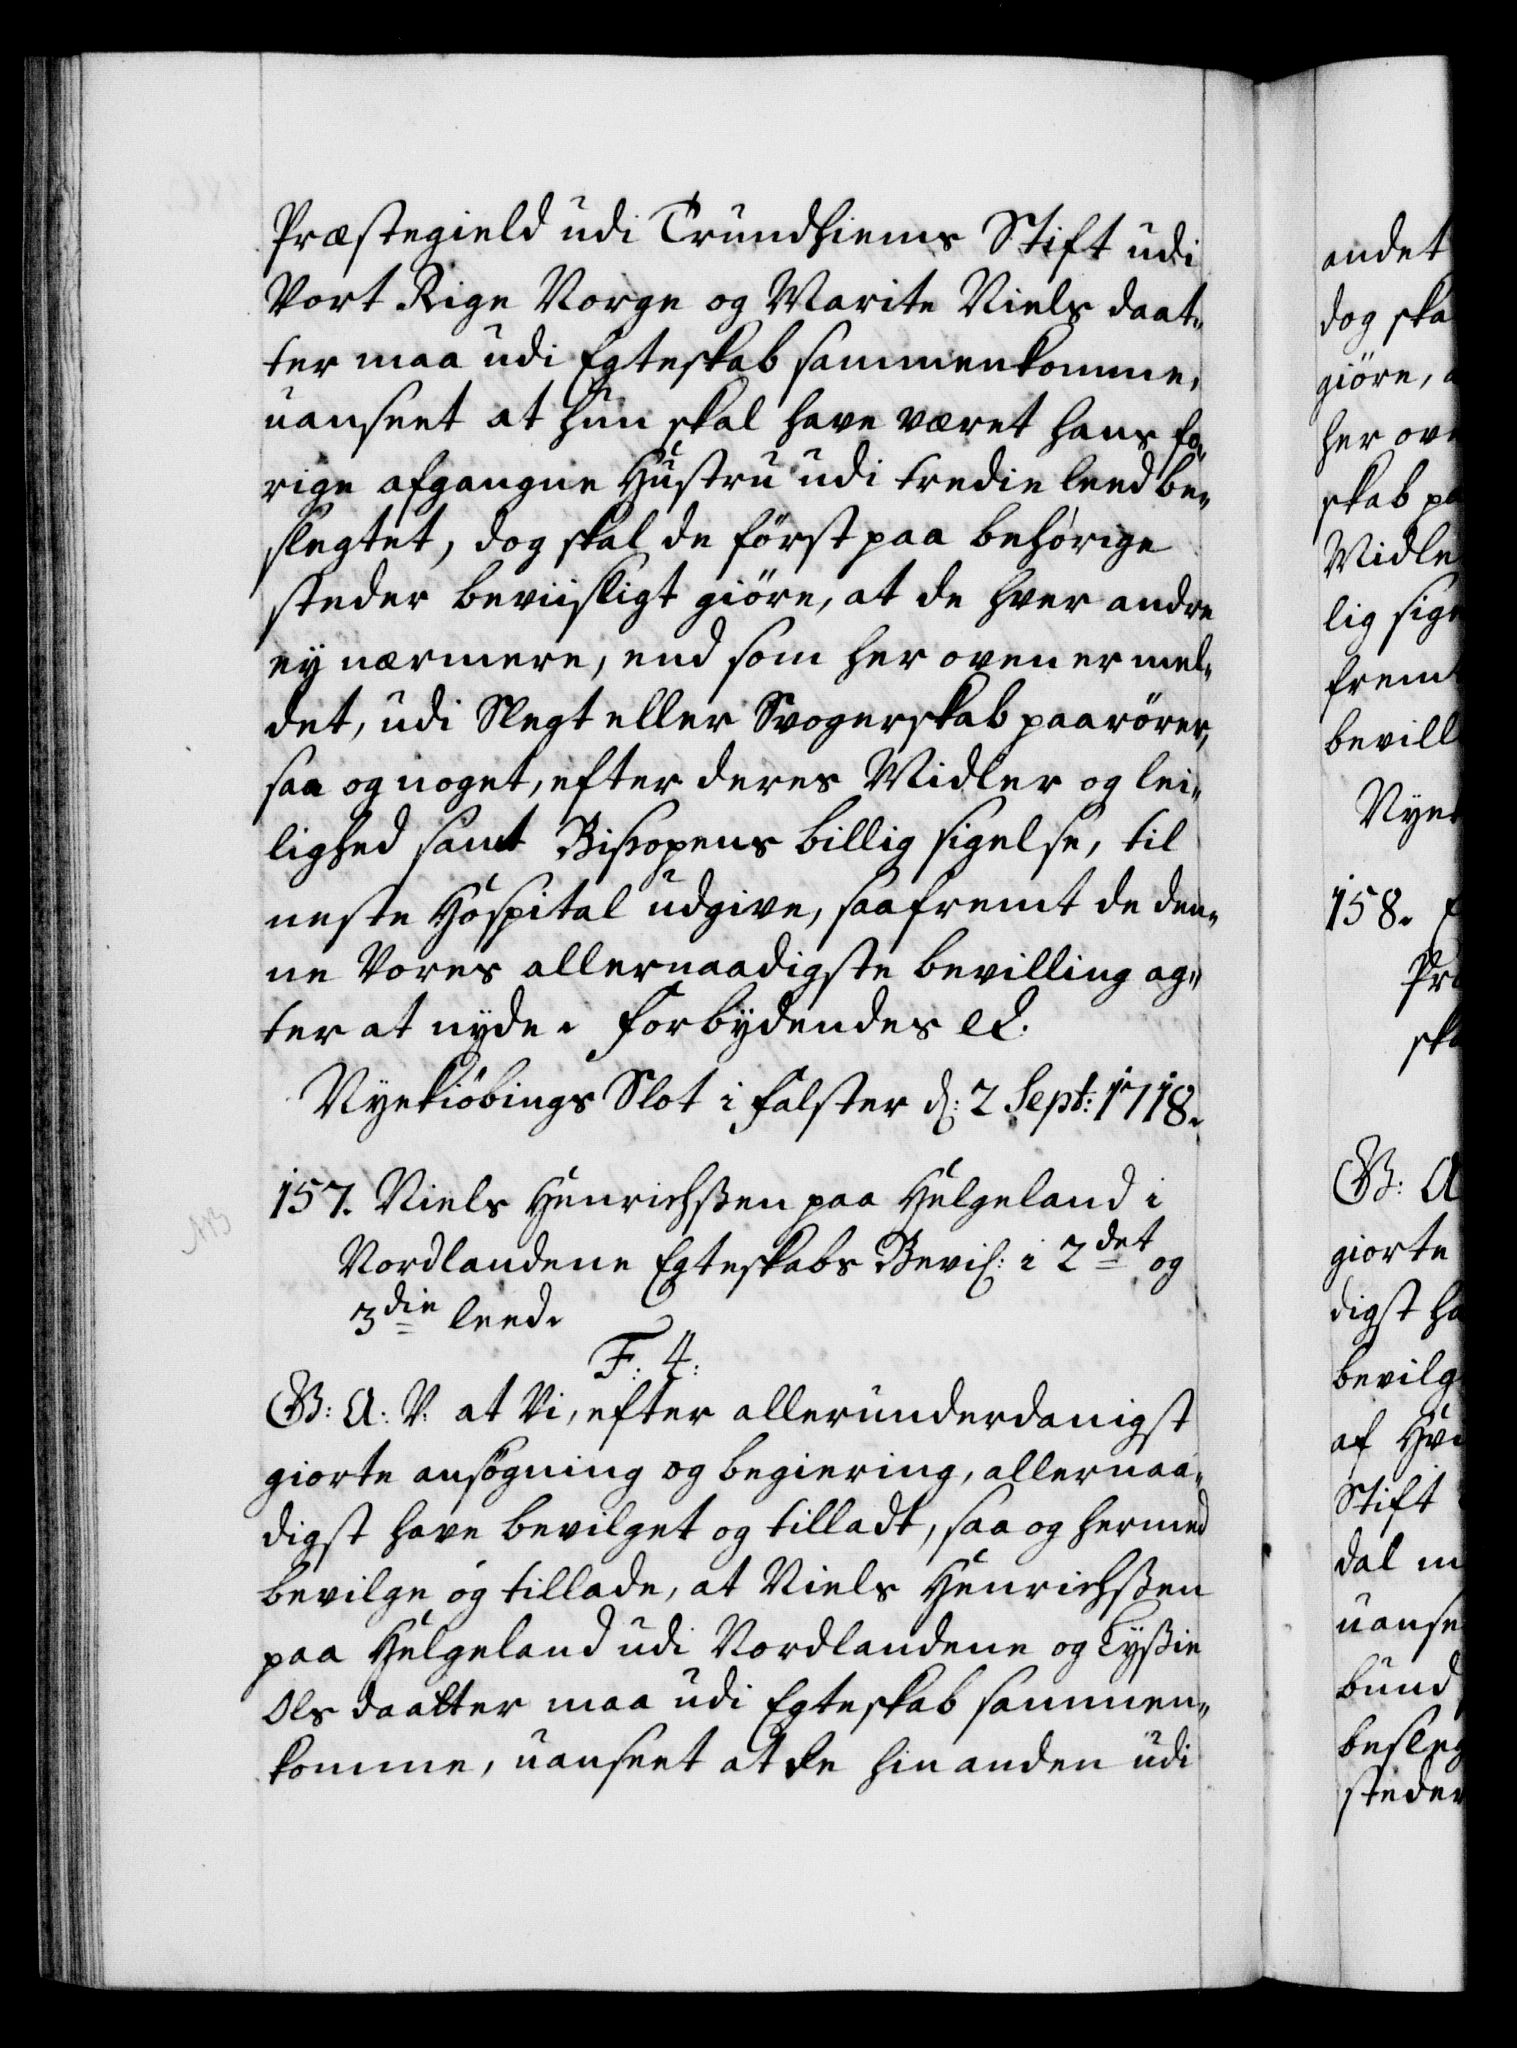 Præstegield udi Trundhiems Stift udi
Vort Rige Norge og Marite Niels daat„
ter maa udi Egteskab sammenkomme,
uanseet at hun skal have været hans fo„
rige afgangne Hustru udi tredie leed be„
slegtet, dog skal de först paa behörige
steder beviisligt giöre, at de hver andre
ey nærmere, end som her oven er mel„
det, udi Slegt eller Svogerskab paarörer,
saa og noget, efter deres Midler og lei„
lighed samt Bispens billig sigelse, til
neste Hospital udgive, saafremt de den„
ne Vores allernaadigste bevilling ag„
ter at nyde. Forbydendes etc.
Nyekiöbings Slot i Falster d: 2 Sept: 1718.
157. Niels Henrichßen paa Helgeland i
NB
Nordlandene Egteskabs Bevil: i 2det og
3die leed.
F: 4:
G: A: V: at Vi, efter allerunderdanigst
giorte ansögning og begiering, allernaa„
digst have bevilget og tilladt, saa og hermed
bevilge og tillade, at Niels Henrichßen
paa Helgeland udi Nordlandene og Zyßie
Ols daatter maa udi Egteskab sammen„
komme, uanseet at de hinanden udi
andet
dog ska
giöre, a
her ove
skab pa
Midle
lig sige
fremt
bevill
Nyek
158. E
Præ
ska
G: A
giorte
digst ha
bevilg
af Hvi
Stift
dal m
uanse
bund
besleg
steder